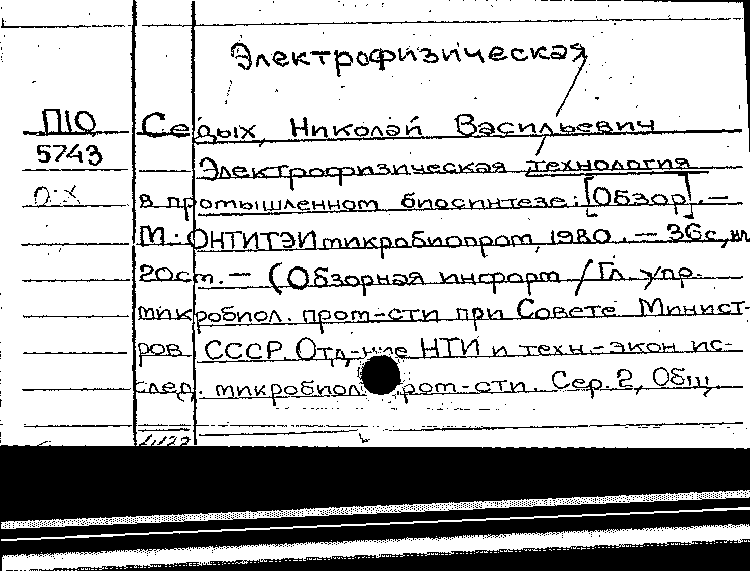 Электрофизическая
П10 Седых, Николай Васильевич
5743 Электрофизическая технология
в промышленном биосинтезе: [Обзор]. —
М.: ОНТИТЭИмикробиопром, 1980. — 36с, ил
20см. — (Обзорная информ / Гл. упр.
микробиол. пром-сти при Совете Минист-
ров СССР. Отд-ние НТИ и техн.-экон ис-
след. микробиол. пром-сти. Сер. 2, Общ.